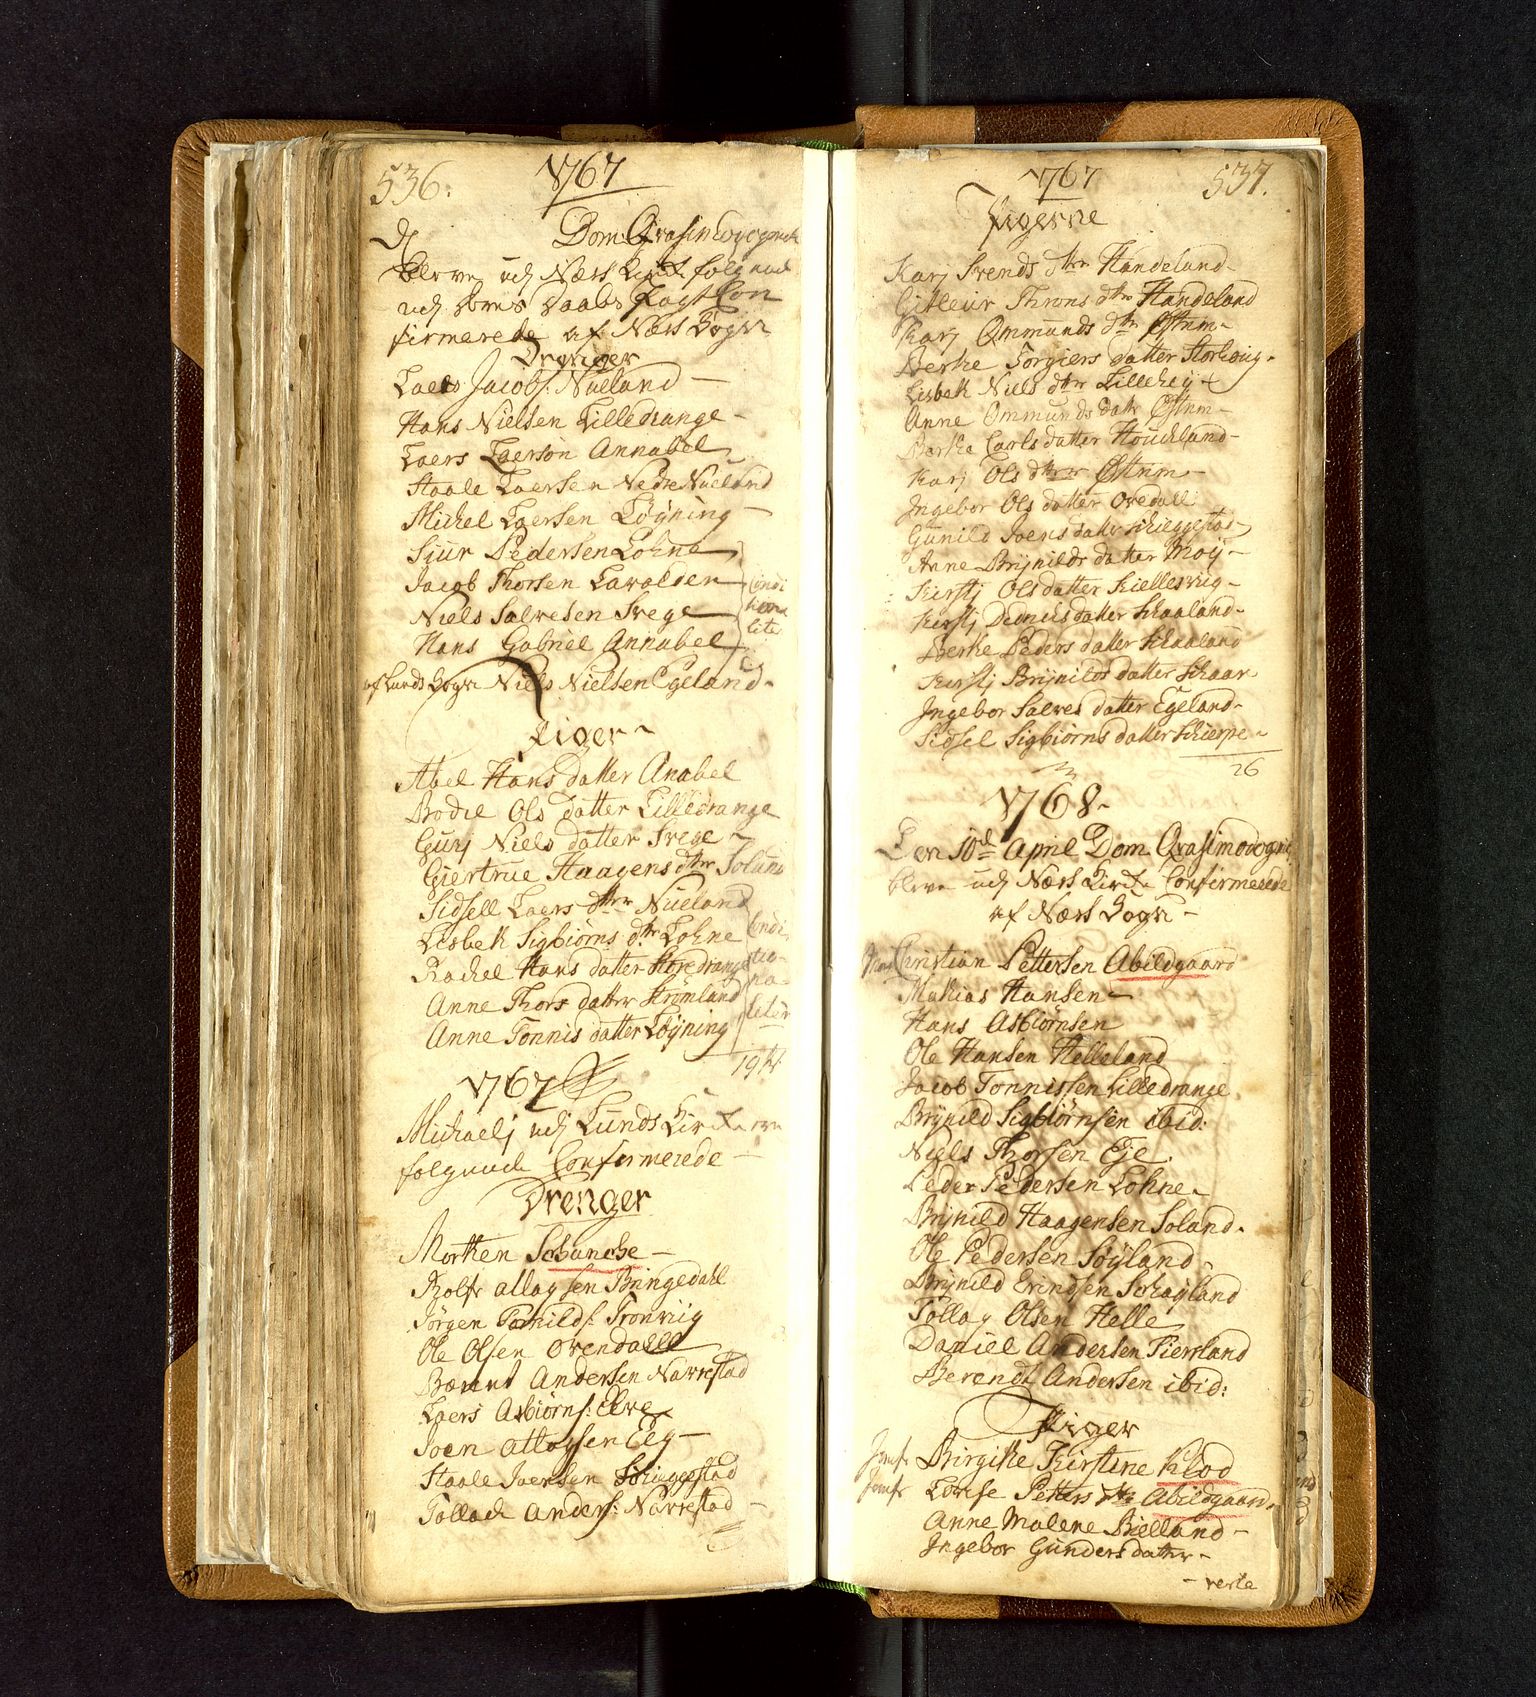 536.
1767
Dom Qvasimodogenit
bleve udj Næss Kirke følgende
udj deres Daabs Pagt Con
firmerede af Næss Sogn
Drenger
Laers Jacobs: Nueland —
Hans Nielsen Lilledrange —
Laers Laerson Annabel
Staale Laersen Nedre Nueland
Michel Laersen Løyning —
Siur Pedersen Lohne
Jacob Thorsen Lavolden
Niels Salvesen Svege
Hans Gabriel Annabel
Condi
tiona
liter
af Lunds Sogn Niels Nielsen Egeland.
Piger
Abel Hans datter Anabel
Bodil Ols datter Lilledrange
Gurj Niels datter Svege
Giertrue Haagens dtr Soland
Sidsell Laers dtr Nueland
Lisbeth Sigbiørns dtr Lohne
Rachel Hans datter Storedrange
Anne Thors datter Strømland
Anne Tønnis datter Løyning
Condi
tio-
na-
liter
19
1767
Michaelj udj Lunds Kirke ere
følgende Confirmerede —
Drenger
Morten Schanche —
Rolf allagsen Bringedahl
Jørgen Tormilds: Tronviig
Ole Olsen Ovendalll
Bærent Andersen Navrestad
Laers Asbiørns: Elve
Joen Attaysen Eeg —
Staale Joensen Schieggestad
Tollach Anders: Navrestad —
1767
537.
Pigerne
Karj Svends dtr Handeland
Gitleur Throns dtr Handeland
Karj Ommunds dtr Østrem
Berthe Torgiers datter Storhoug.
Lisbeth Niels dtr Lillehey
Anne Ommunds datr Østrem
Barthe Carls datter Houchland
Karj Ols dtr Østrem
Ingebor Ols datter Ovedall
Gunild Joens datter Schieggestad
Anne Brynilds datter Moy —
Kirstj Ols datter Kiellesvig —
Kirstj Didrichs datter Schaaland
Berthe Peders datter Schaaland
Kirstj Brynilds datter Schaar
Ingebor Salves datter Egeland
Sidsel Sigbiørns datter Schierpe
26
1768.
Den 10de April Dom Qvasimodogenit
bleve udj Næss Kirke Confirmerede
af Næss Sogn —
Christian Pettersen Abildgaard
Mathias Hansen
Hans Asbiørnsen
Ole Hansen Helleland
Jacob Tønnissen Lilledrange
Brynild Sigbiørnsen ibid:
Niels Thorsen Eje
Peder Pedersen Lohne
Brynild Haagensen Soland.
Ole Pedersen Søyland
Brynild Erindsen Schagland
Tollag Olsen Helle
Daniel Andersen Fiersland
Berendt Andersen ibid:
Piger
Jomfr Birgithe Kirstine Klod
Jomfr Lovise Petters dtr Abildgaard
Anne Malene Bielland
Ingebor Gunders datter
— verte